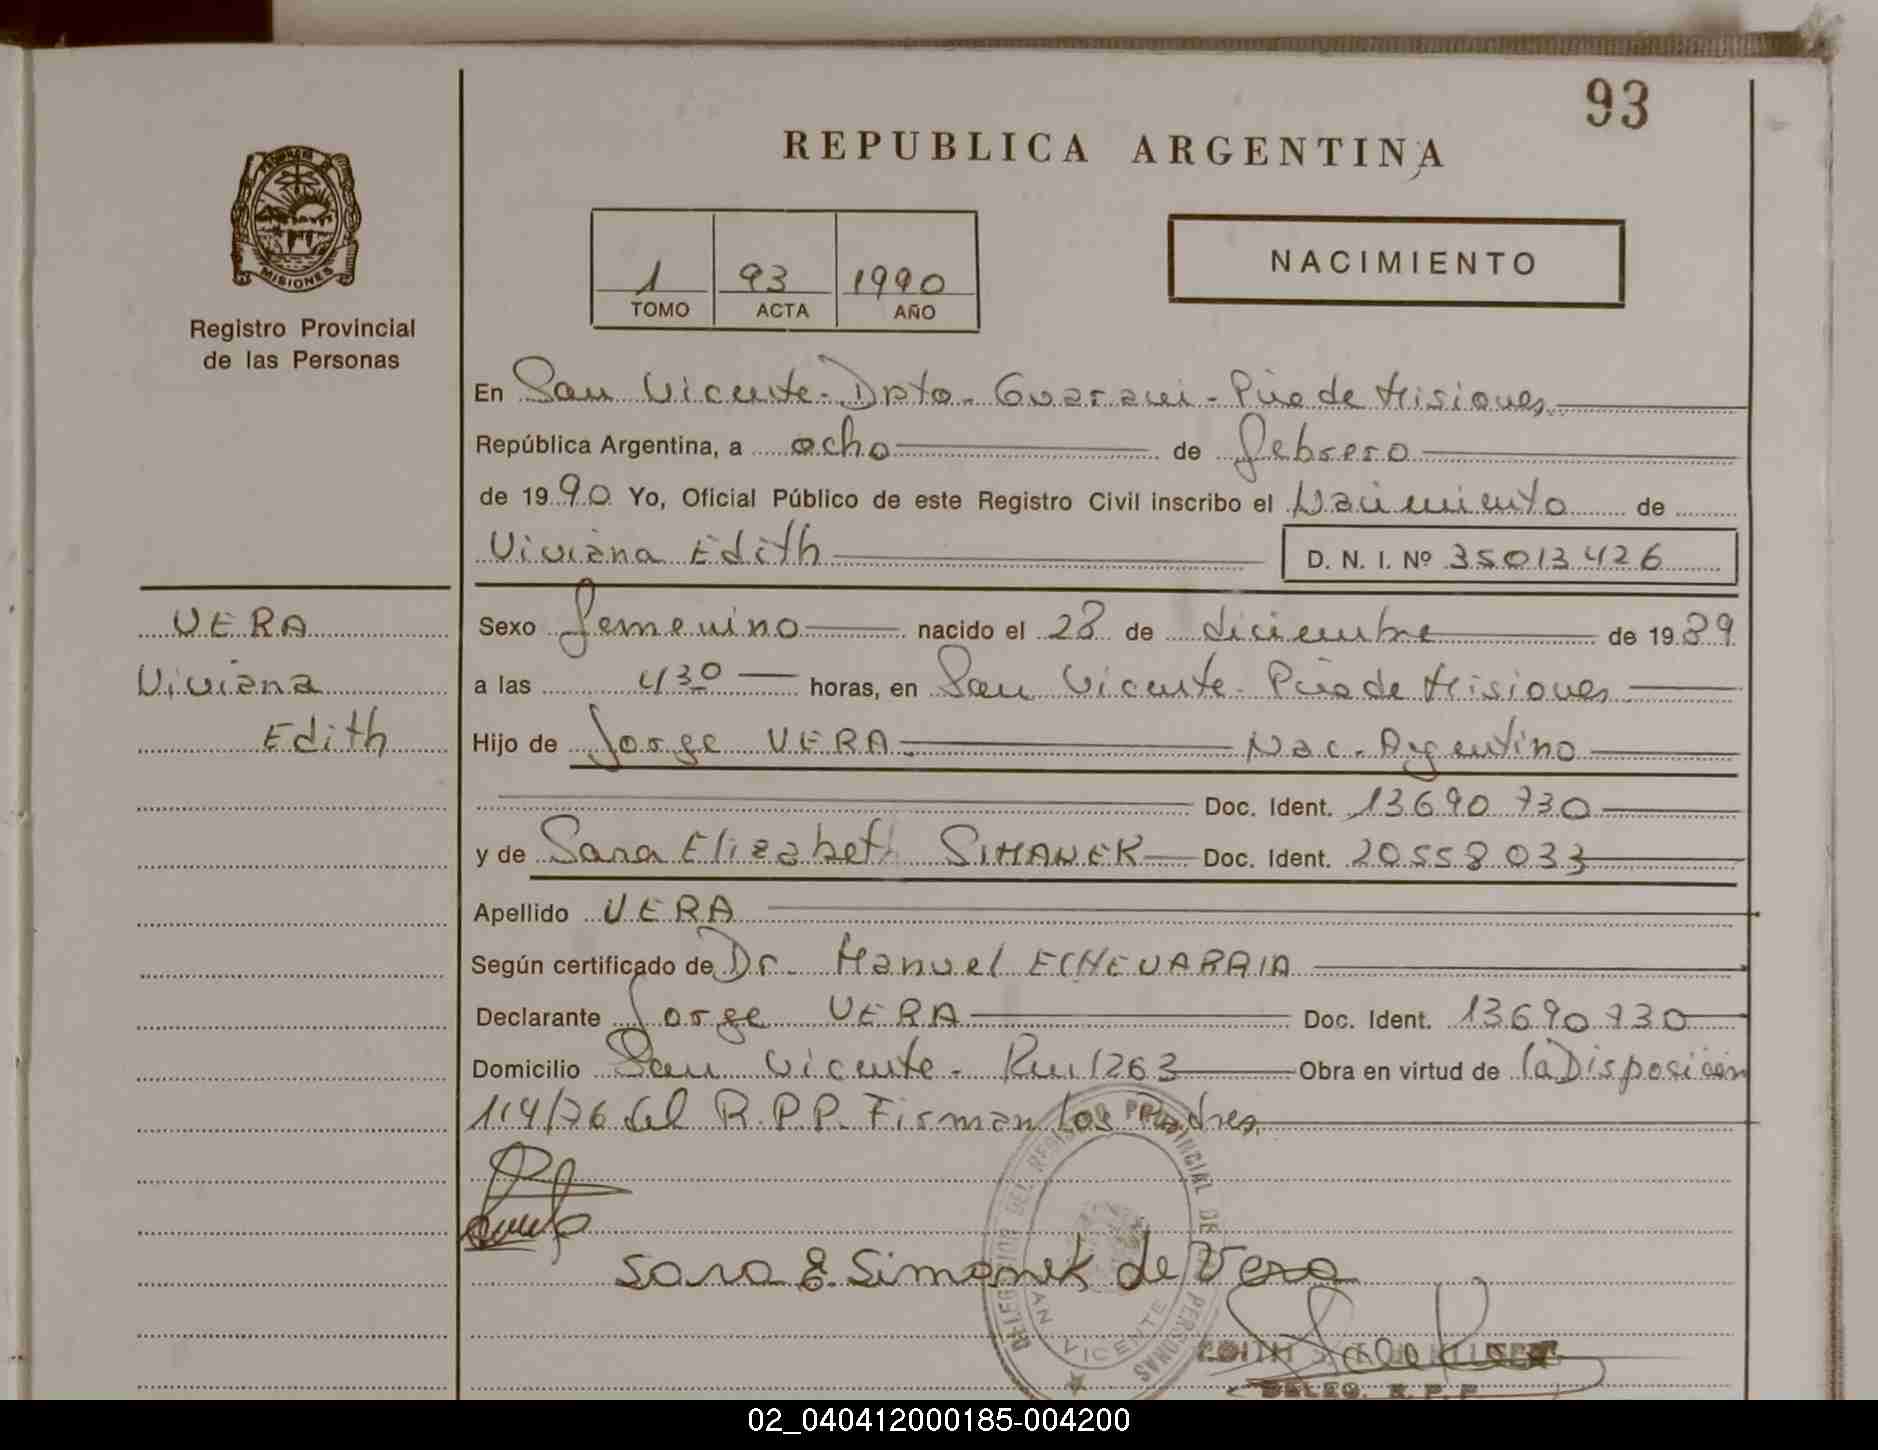 93
REPUBLICA ARGENTINA
MISIONES
Registro Provincial
de las Personas
1 93 1990
TOMO ACTA AÑO
NACIMIENTO
En San Vicente - Dpto. Guarani - Pcia de Misiones
República Argentina, a ocho de febrero
de 1990 Yo, Oficial Público de este Registro Civil inscribo el Nacimiento de
Viviana Edith D. N. I. Nº 35013426
VERA
Viviana
Edith
Sexo femenino nacido el 28 de diciembre de 1989
a las 430 horas, en San Vicente - Pcia de Misiones
Hijo de Jorge VERA Nac. Argentino
Doc. Ident. 13690730
y de Sara Elizabeth SIMANEK Doc. Ident. 20558033
Apellido VERA
Según certificado de Dr. Manuel ECHEVARRIA
Declarante Jorge VERA Doc. Ident. 13690730
Domicilio San Vicente - 1263 Obra en virtud de la Disposición
114/76 del R.P.P. Firman los Padres
Sara E. Simanek de Vera
DELEGACION DEL REGISTRO PROVINCIAL DE PERSONAS
SAN VICENTE
DELEG. R.P.P
02_040412000185-004200